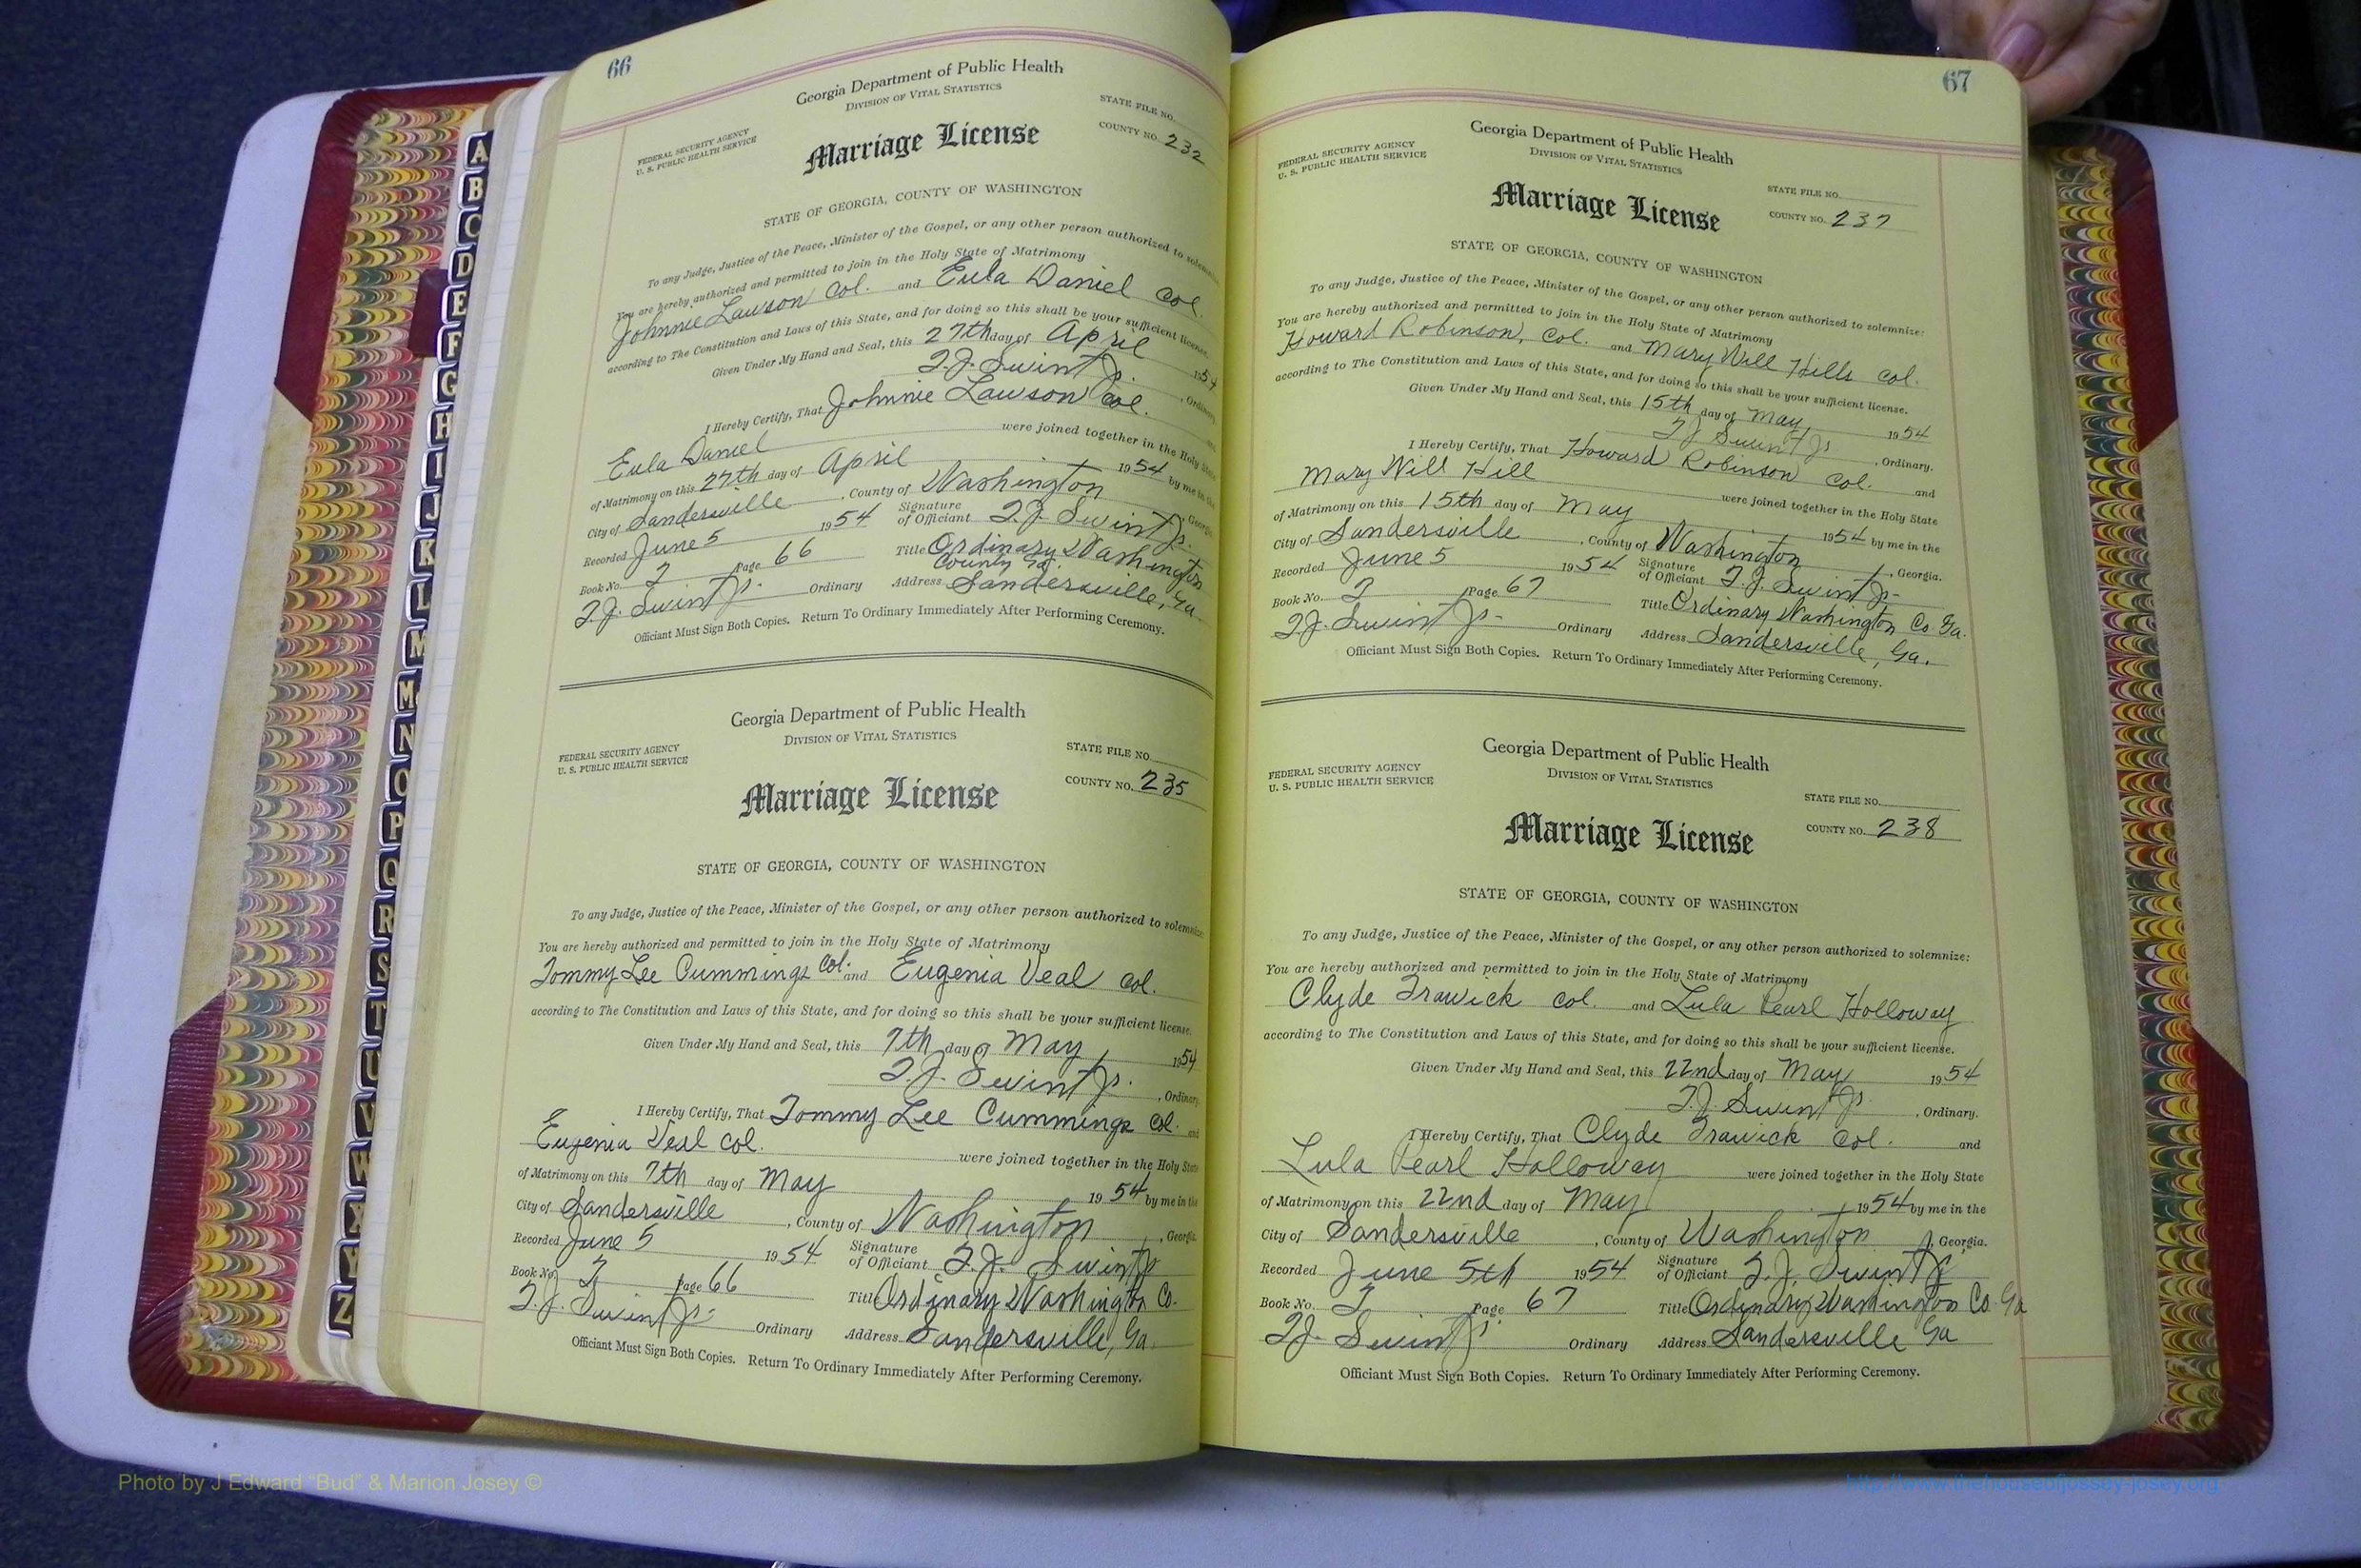 66
Georgia Department of Public Health
DIVISION OF VITAL STATISTICS
FEDERAL SECURITY AGENCY
U. S. PUBLIC HEALTH SERVICE
STATE FILE NO.
COUNTY NO. 232
Marriage License
STATE OF GEORGIA, COUNTY OF WASHINGTON
To any Judge, Justice of the Peace, Minister of the Gospel, or any other person authorized to solemnize
You are hereby authorized and permitted to join in the Holy State of Matrimony
Johnnie Lawson Col. and Eula Daniel Col.
according to The Constitution and Laws of this State, and for doing so this shall be your sufficient license.
Given Under My Hand and Seal, this 27th day of April 1954
T.J. Swint Jr. , Ordinary
I Hereby Certify, That Johnnie Lawson Col.
Eula Daniel were joined together in the Holy State
of Matrimony on this 27th day of April 1954 by me in the
City of Sandersville , County of Washington , Georgia
Recorded June 5 1954 Signature of Officiant T.J. Swint Jr.
Book No. Page 66 Title Ordinary Washington
County Ga.
T.J. Swint Jr. Ordinary Address Sandersville, Ga.
Officiant Must Sign Both Copies. Return To Ordinary Immediately After Performing Ceremony.
Georgia Department of Public Health
DIVISION OF VITAL STATISTICS
FEDERAL SECURITY AGENCY
U. S. PUBLIC HEALTH SERVICE
STATE FILE NO.
COUNTY NO. 235
Marriage License
STATE OF GEORGIA, COUNTY OF WASHINGTON
To any Judge, Justice of the Peace, Minister of the Gospel, or any other person authorized to solemnize
You are hereby authorized and permitted to join in the Holy State of Matrimony
Tommy Lee Cummings Col. and Eugenia Veal Col.
according to The Constitution and Laws of this State, and for doing so this shall be your sufficient license.
Given Under My Hand and Seal, this 7th day of May, 1954
T.J. Swint Jr. , Ordinary
I Hereby Certify, That Tommy Lee Cummings Col. and
Eugenia Veal col. were joined together in the Holy State
of Matrimony on this 7th day of May 1954 by me in the
City of Sandersville , County of Washington , Georgia
Recorded June 5 1954 Signature of Officiant T.J. Swint Jr
Book No. Page 66 Title Ordinary Washington Co.
T.J. Swint Jr. Ordinary Address Sandersville, Ga.
Officiant Must Sign Both Copies. Return To Ordinary Immediately After Performing Ceremony.
67
Georgia Department of Public Health
DIVISION OF VITAL STATISTICS
FEDERAL SECURITY AGENCY
U. S. PUBLIC HEALTH SERVICE
STATE FILE NO.
COUNTY NO. 237
Marriage License
STATE OF GEORGIA, COUNTY OF WASHINGTON
To any Judge, Justice of the Peace, Minister of the Gospel, or any other person authorized to solemnize:
You are hereby authorized and permitted to join in the Holy State of Matrimony
Howard Robinson, Col. and Mary Will Hills Col.
according to The Constitution and Laws of this State, and for doing so this shall be your sufficient license.
Given Under My Hand and Seal, this 15th day of May, 1954
T.J. Swint Jr. , Ordinary.
I Hereby Certify, That Howard Robinson Col. and
Mary Will Hill were joined together in the Holy State
of Matrimony on this 15th day of May 1954 by me in the
City of Sandersville , County of Washington , Georgia.
Recorded June 5 1954 Signature of Officiant T.J. Swint Jr.
Book No. Page 67 Title Ordinary Washington Co. Ga.
T.J. Swint Jr. Ordinary Address Sandersville, Ga.
Officiant Must Sign Both Copies. Return To Ordinary Immediately After Performing Ceremony.
Georgia Department of Public Health
DIVISION OF VITAL STATISTICS
FEDERAL SECURITY AGENCY
U. S. PUBLIC HEALTH SERVICE
STATE FILE NO.
COUNTY NO. 238
Marriage License
STATE OF GEORGIA, COUNTY OF WASHINGTON
To any Judge, Justice of the Peace, Minister of the Gospel, or any other person authorized to solemnize:
You are hereby authorized and permitted to join in the Holy State of Matrimony
Clyde Trawick Col. and Lula Pearl Holloway
according to The Constitution and Laws of this State, and for doing so this shall be your sufficient license.
Given Under My Hand and Seal, this 22nd day of May 1954
T.J. Swint Jr. , Ordinary.
I Hereby Certify, That Clyde Trawick Col. and
Lula Pearl Holloway were joined together in the Holy State
of Matrimony on this 22nd day of May 1954 by me in the
City of Sandersville , County of Washington , Georgia.
Recorded June 5th 1954 Signature of Officiant T.J. Swint Jr
Book No. Page 67 Title Ordinary Washington Co. Ga
T.J. Swint Jr. Ordinary Address Sandersville Ga
Officiant Must Sign Both Copies. Return To Ordinary Immediately After Performing Ceremony.
A
B
C
D
E
F
G
H
I
J
K
L
M
Mc
N
O
P
Q
R
S
T
U
V
W
X
Y
Z
Photo by J Edward “Bud” & Marion Josey ©
http://www.thehouseofjossey-josey.org